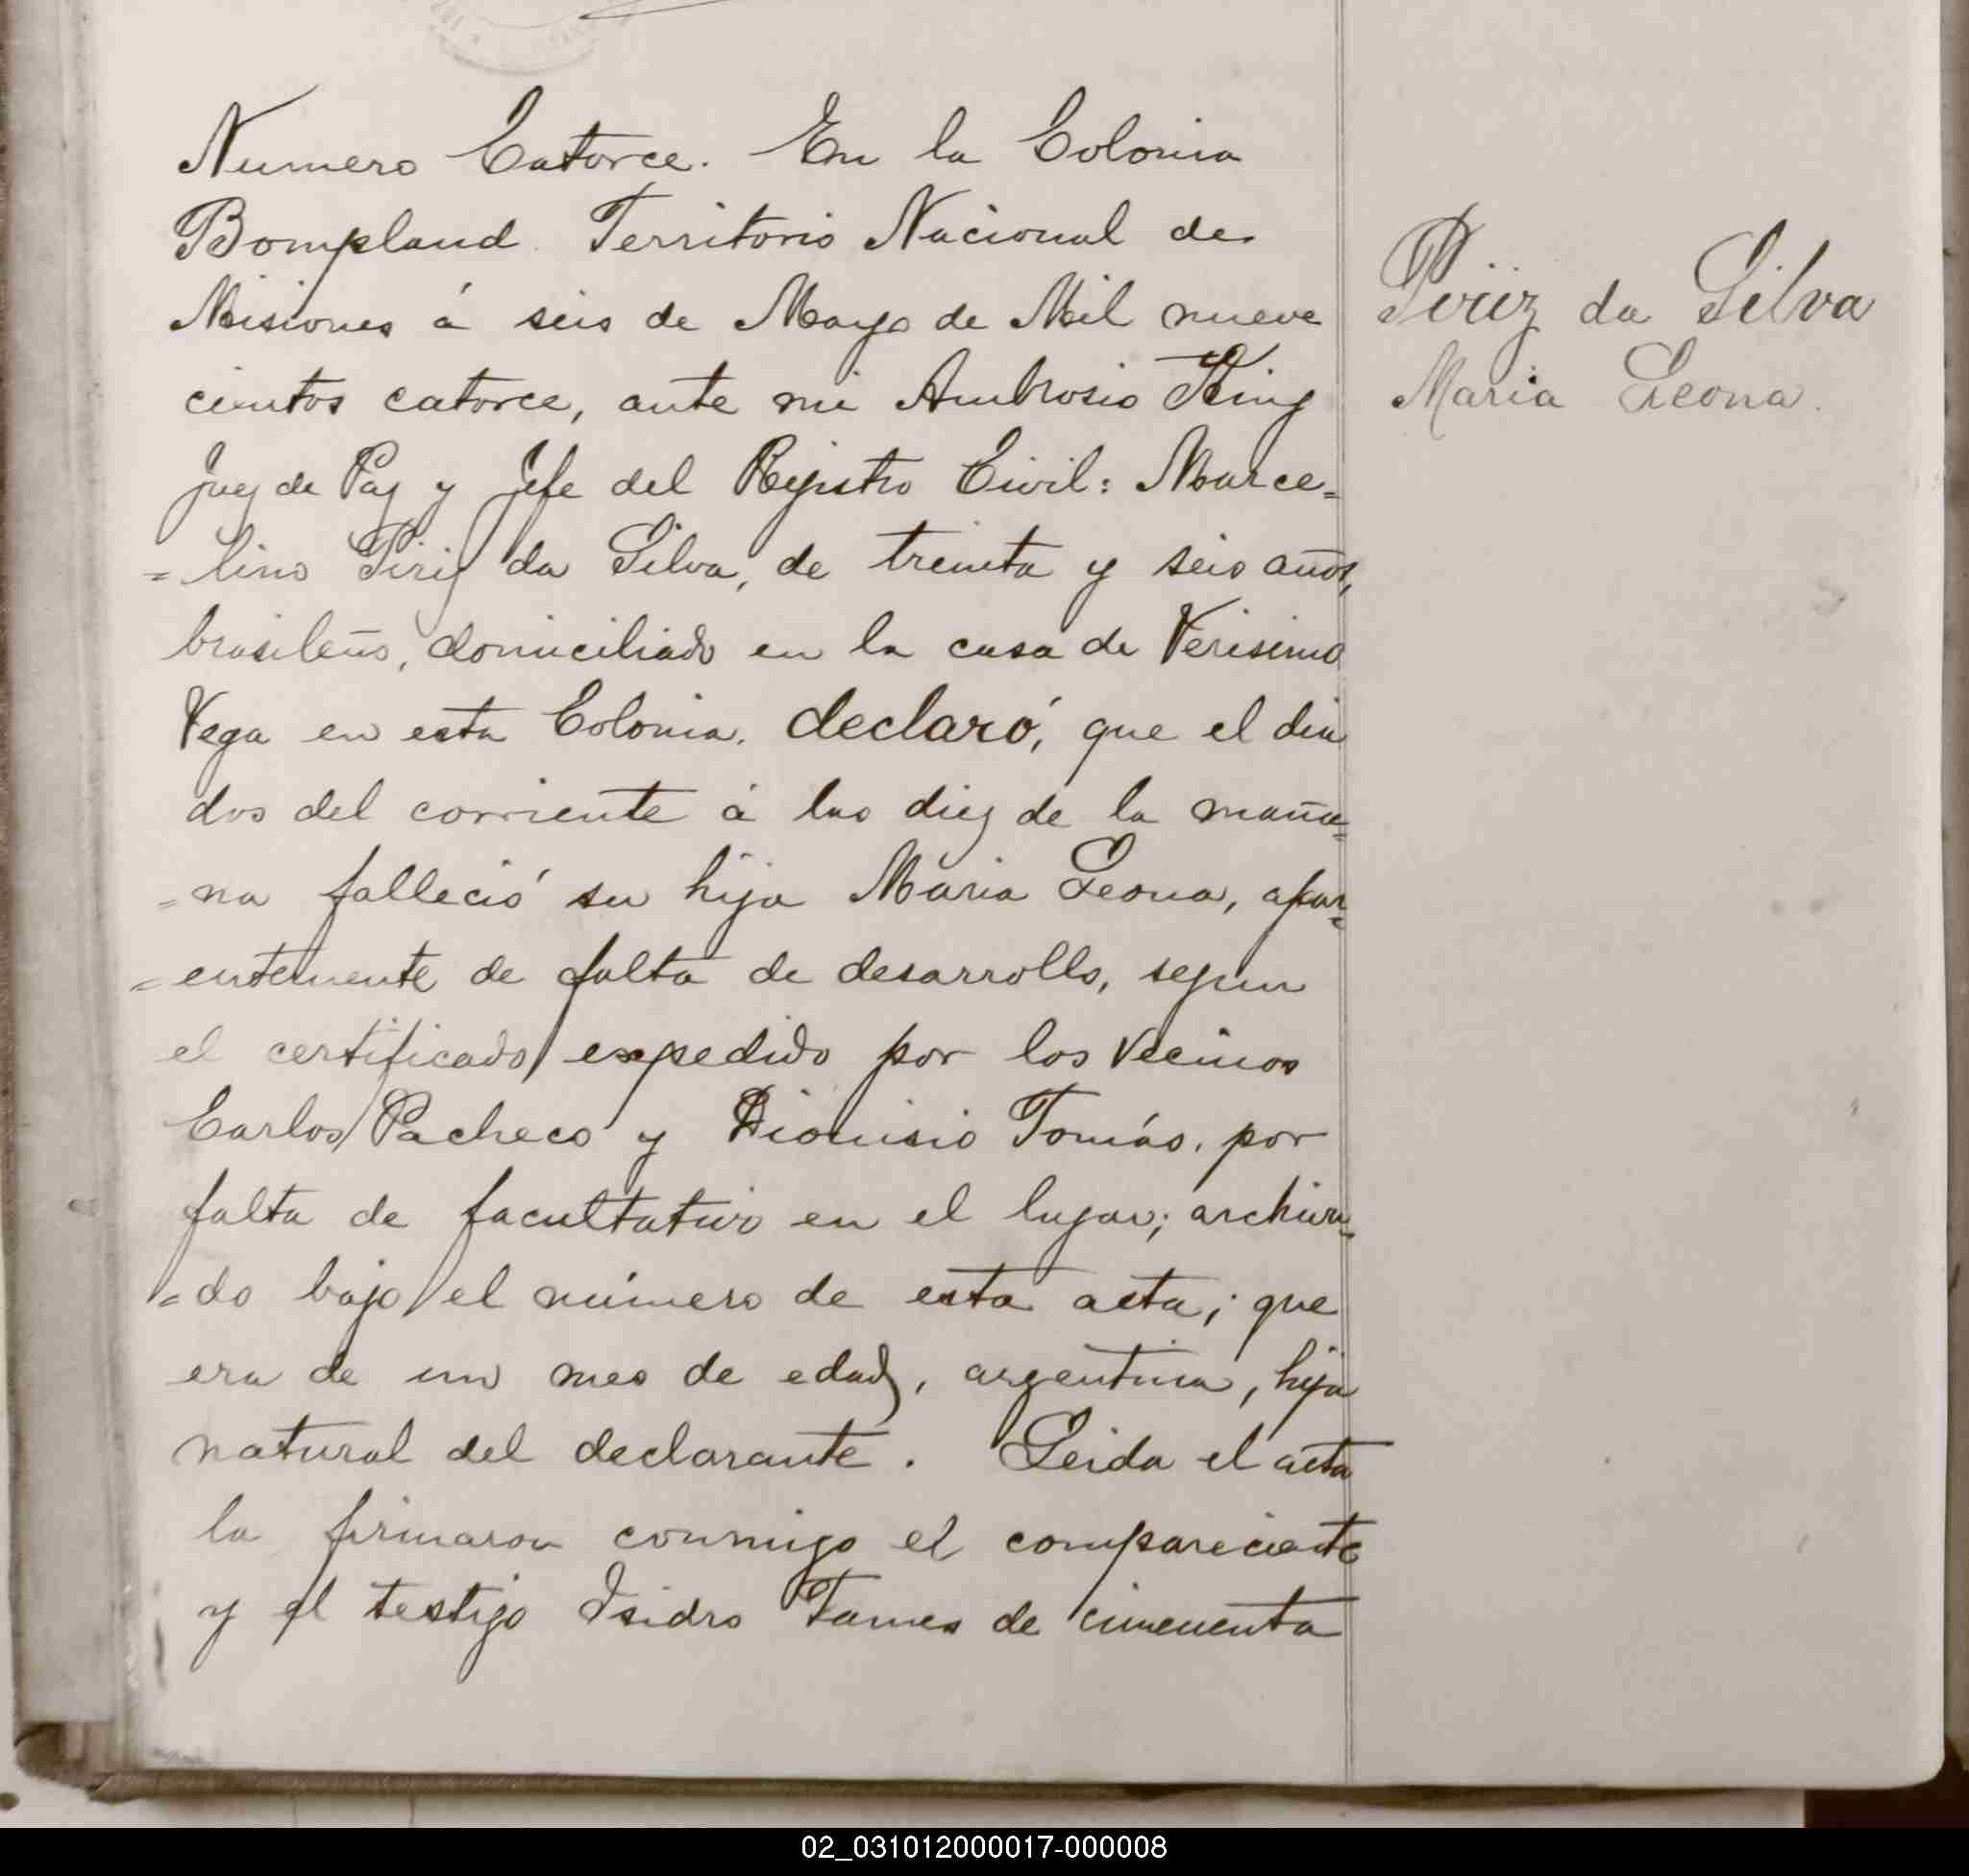 Numero Catorce. En la Colonia
Bompland. Territorio Nacional de
Misiones á seis de Mayo de Mil nueve
cientos catorce, ante mi Ambrosio King
Juez de Paz y Jefe del Registro Civil: Marce=
=lino Piriz da Silva, de treinta y seis años,
brasileño, domiciliado en la casa de Verisimo
Vega en esta Colonia. declaró, que el dia
dos del corriente á las diez de la maña=
=na falleció su hija Maria Leona, apar=
=entemente de falta de desarrollo, segun
el certificado expedido por los vecinos
Carlos Pacheco y Dionisio Tomás, por
falta de facultativo en el lugar; archiva=
=do bajo el número de esta acta; que
era de un mes de edad, argentina, hija
natural del declarante. Leida el acta
la firmaron conmigo el compareciente
y el testigo Isidro Tames de cincuenta
Piriz da Silva
Maria Leona.
02_031012000017-000008